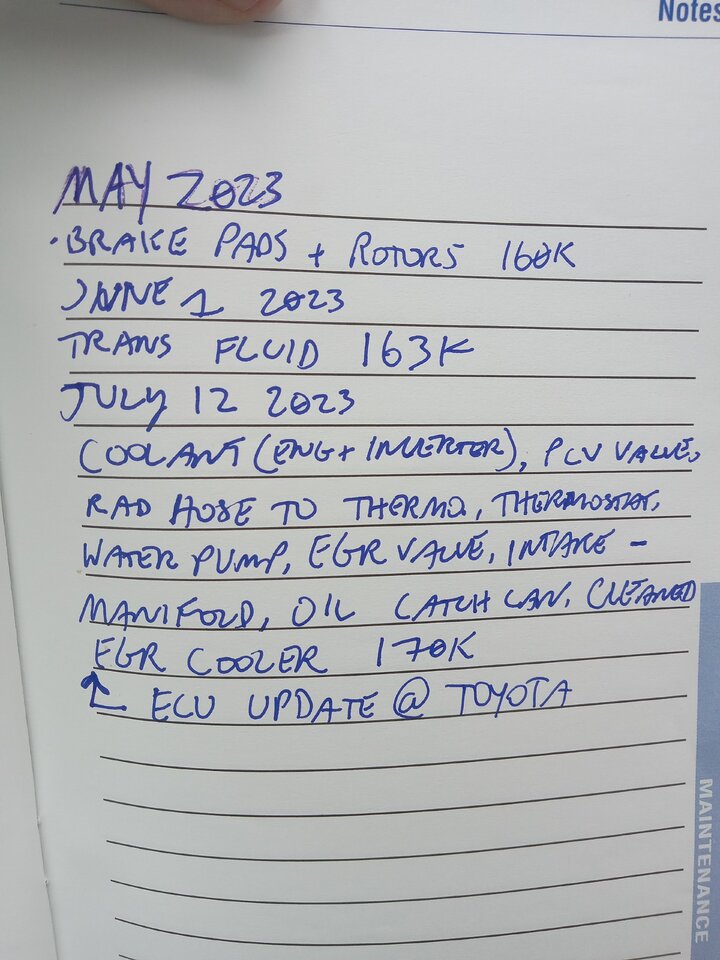 Notes
MAY 2023
·BRAKE PADS + ROTORS 160K
JUNE 1 2023
TRANS FLUID 163K
JULY 12 2023
COOLANT (ENG + INVERTER), PCV VALVE,
RAD HOSE TO THERMO, THERMOSTAT,
WATER PUMP, EGR VALVE, INTAKE -
MANIFOLD, OIL CATCH CAN, CLEANED
EGR COOLER 170K
↑ ECU UPDATE @ TOYOTA
MAINTENANCE